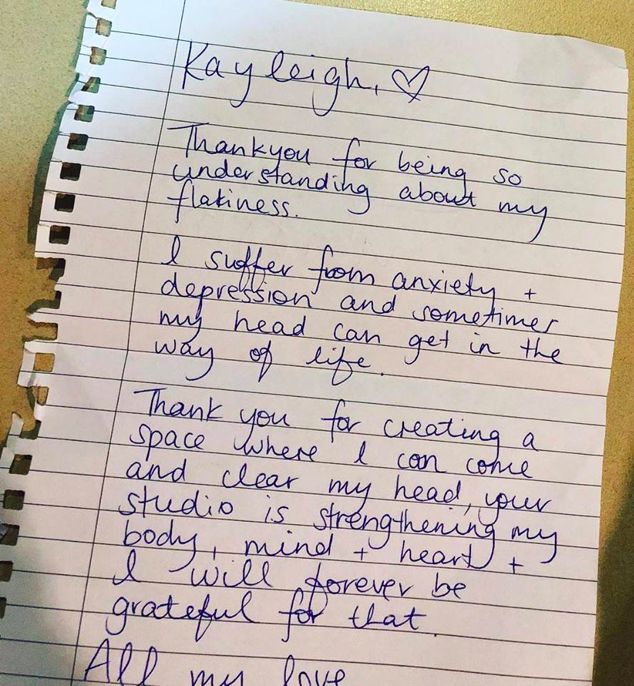 Kayleigh, ♡
Thankyou for being so
understanding about my
flakiness.
I suffer from anxiety +
depression and sometimes
my head can get in the
way of life.
Thank you for creating a
space where I can come
and clear my head, your
studio is strengthening my
body, mind + heart +
I will forever be
grateful for that.
All my love